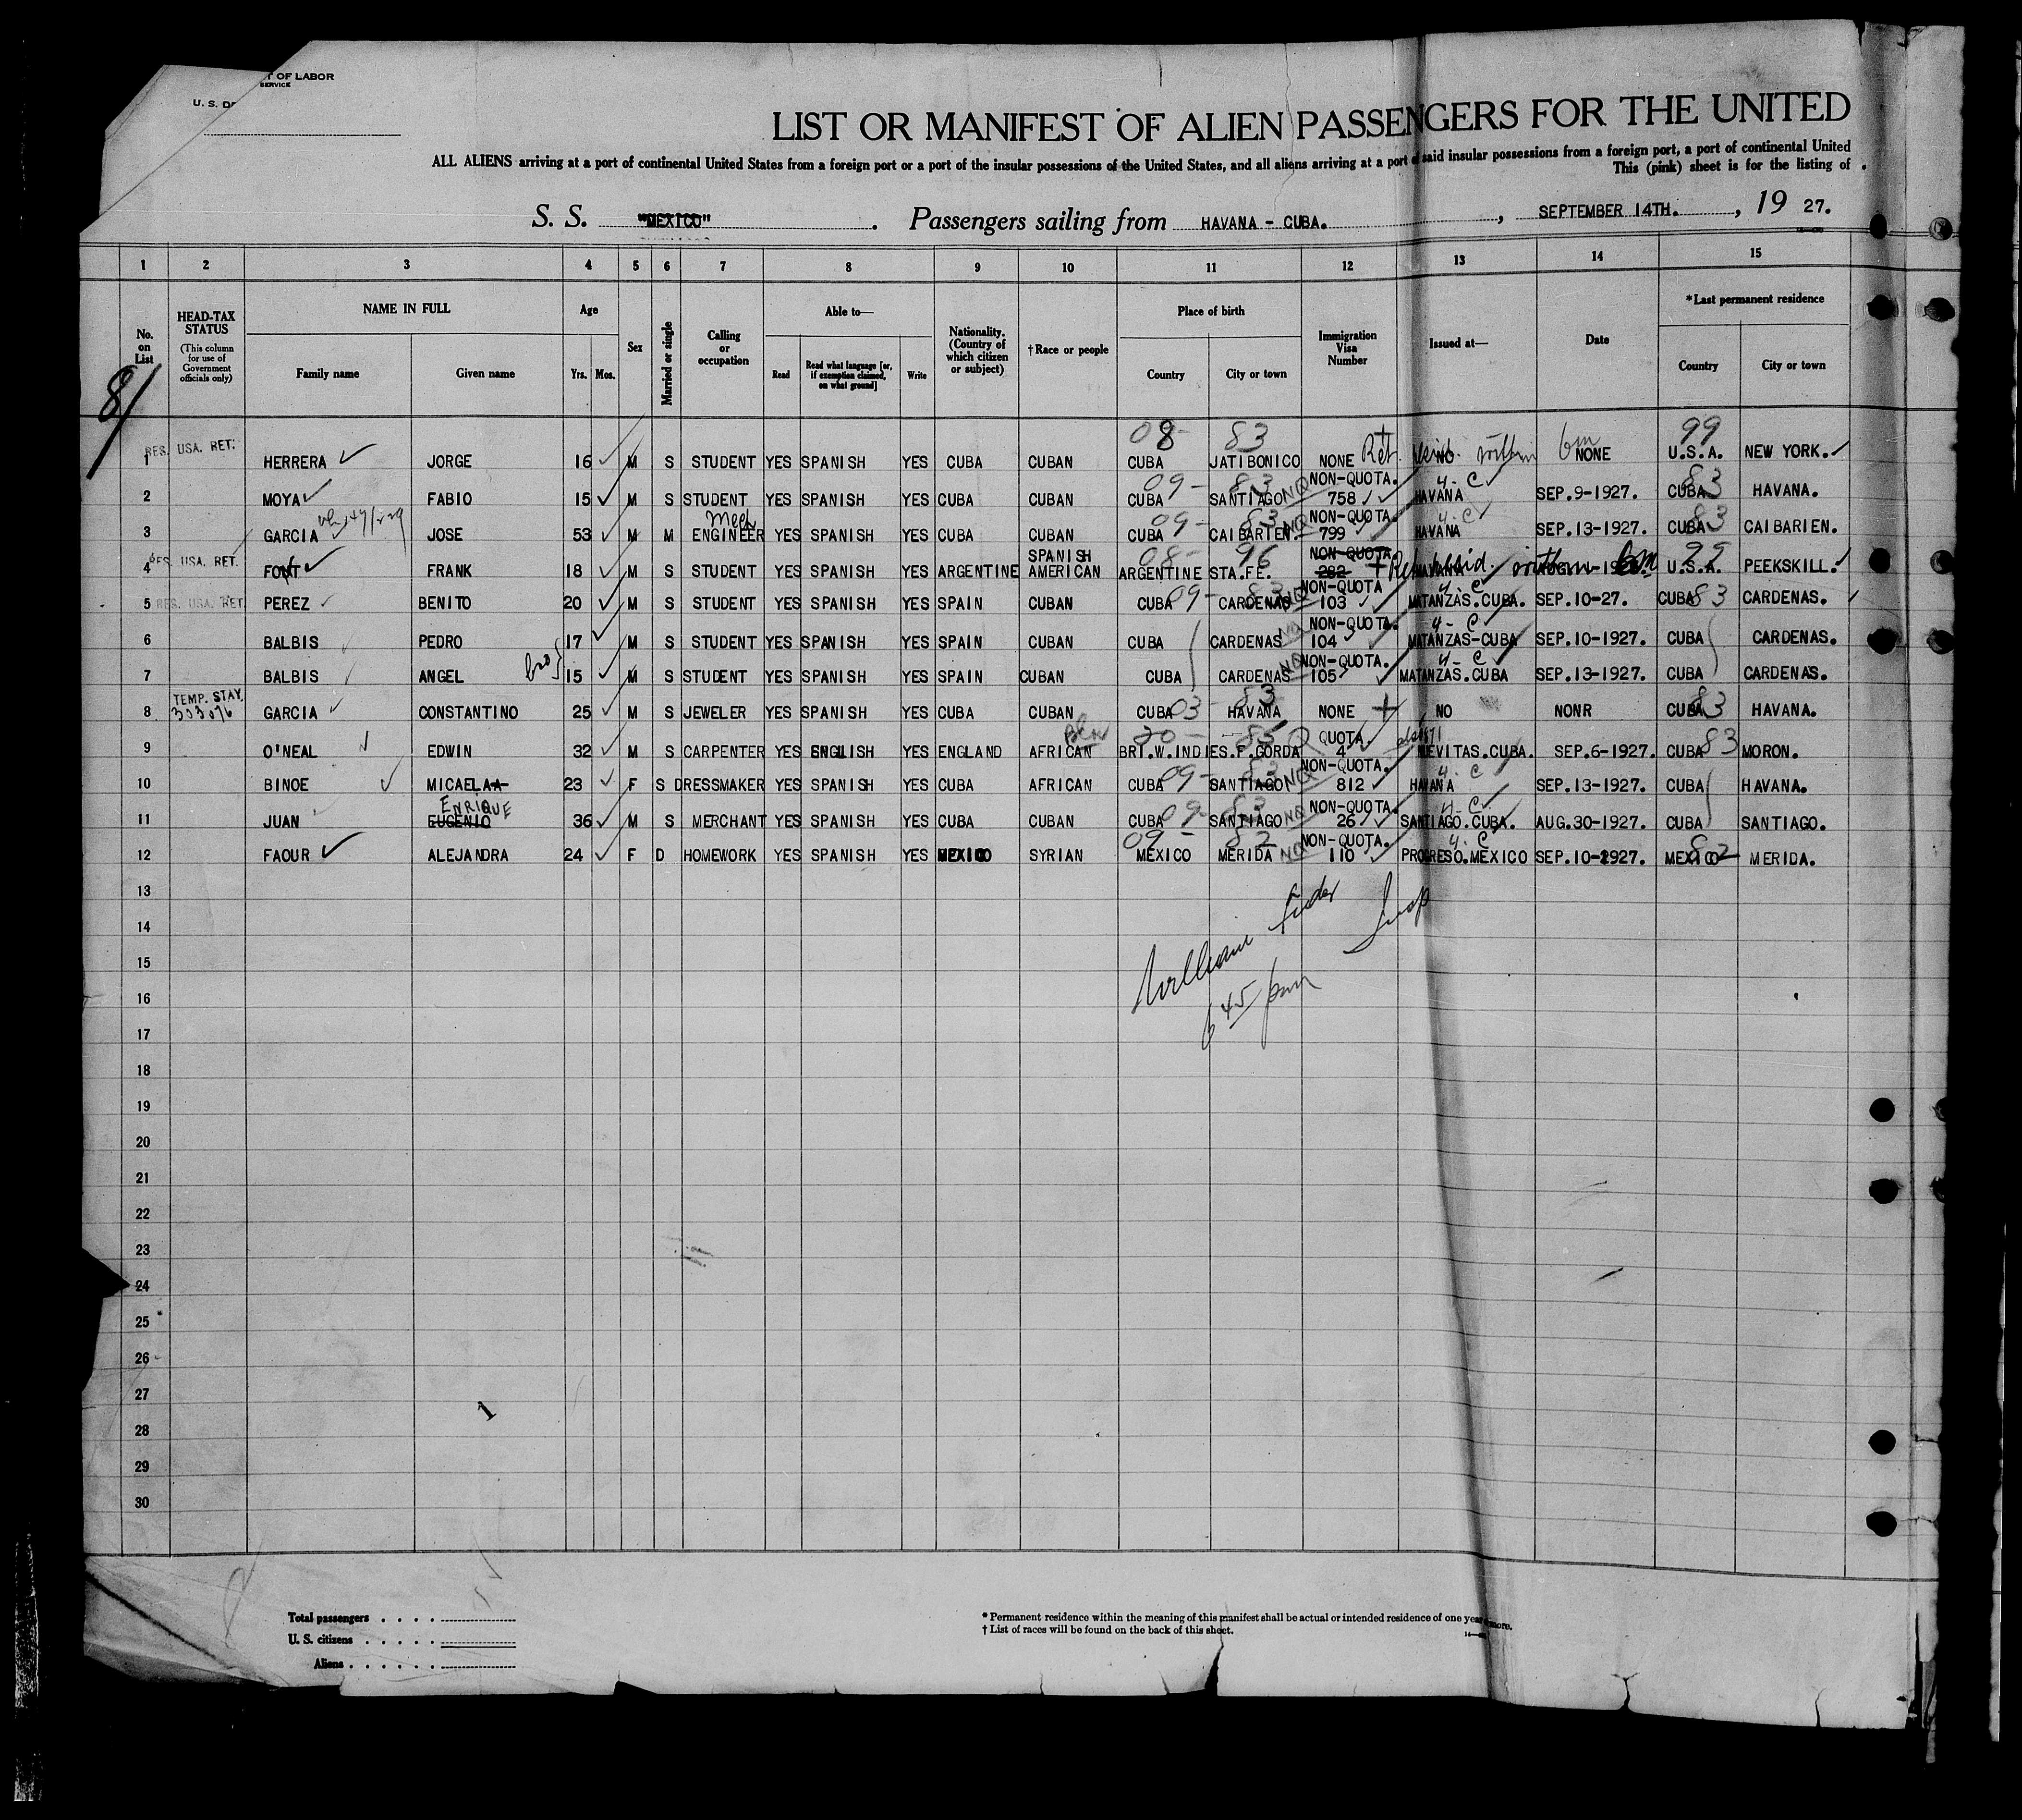 T OF LABOR
SERVICE
U. S. DE
LIST OR MANIFEST OF ALIEN PASSENGERS FOR THE UNITED
ALL ALIENS arriving at a port of continental United States from a foreign port or a port of the insular possessions of the United States, and all aliens arriving at a port of said insular possessions from a foreign port, a port of continental United
This (pink) sheet is for the listing of
S. S. "MEXICO". Passengers sailing from HAVANA - CUBA. , SEPTEMBER 14TH. , 19 27.
1 2 3 4 5 6 7 8 9 10 11 12 13 14 15
No. on List
HEAD-TAX STATUS (This column for use of Government officials only)
NAME IN FULL Family name Given name
Age Yrs. Mos.
Sex
Married or single
Calling or occupation
Able to— Read Read what language [or, if exemption claimed, on what ground] Write
Nationality. (Country of which citizen or subject)
†Race or people
Place of birth Country City or town
Immigration Visa Number
Issued at—
Date
*Last permanent residence Country City or town
81
08- 83 99
RES. USA. RET. 1 HERRERA JORGE 16 M S STUDENT YES SPANISH YES CUBA CUBAN CUBA JATIBONICO NONE Ret. NO 6m NONE U.S.A. NEW YORK.
09- 83 NQ NON-QUOTA. 4-C 83
2 MOYA FABIO 15 M S STUDENT YES SPANISH YES CUBA CUBAN CUBA SANTIAGO 758 HAVANA SEP.9-1927. CUBA HAVANA.
Mech 09- 83 NQ NON-QUOTA. 4-C 83
3 GARCIA JOSE 53 M M ENGINEER YES SPANISH YES CUBA CUBAN CUBA CAIBARIEN. 799 HAVANA SEP.13-1927. CUBA CAIBARIEN.
SPANISH 08- 96 NON-QUOTA 99
RES. USA. RET. 4 FONT FRANK 18 M S STUDENT YES SPANISH YES ARGENTINE AMERICAN ARGENTINE STA.FE. 282 HAVANA 6m U.S.A. PEEKSKILL.
09- 83 NQ NON-QUOTA 4-C 83
5 RES. USA. RET. PEREZ BENITO 20 M S STUDENT YES SPANISH YES SPAIN CUBAN CUBA CARDENAS 103 MATANZAS.CUBA. SEP.10-27. CUBA CARDENAS.
NQ NON-QUOTA. 4-C
6 BALBIS PEDRO 17 M S STUDENT YES SPANISH YES SPAIN CUBAN CUBA CARDENAS 104 MATANZAS-CUBA SEP.10-1927. CUBA CARDENAS.
bro NQ NON-QUOTA. 4-C
7 BALBIS ANGEL 15 M S STUDENT YES SPANISH YES SPAIN CUBAN CUBA CARDENAS 105 MATANZAS.CUBA SEP.13-1927. CUBA CARDENAS.
TEMP. STAY. 03- 83 83
8 303076 GARCIA CONSTANTINO 25 M S JEWELER YES SPANISH YES CUBA CUBAN CUBA HAVANA NONE NO NONR CUBA HAVANA.
Blk 20- 85 Q QUOTA 83
9 O'NEAL EDWIN 32 M S CARPENTER YES ENGLISH YES ENGLAND AFRICAN BRI.W.INDIES.P.GORDA 4 NUEVITAS.CUBA. SEP.6-1927. CUBA MORON.
09- 83 NQ NON-QUOTA. 4-C
10 BINOE MICAELAA 23 F S DRESSMAKER YES SPANISH YES CUBA AFRICAN CUBA SANTIAGO 812 HAVANA SEP.13-1927. CUBA HAVANA.
ENRIQUE 09- 83 NQ NON-QUOTA. 4-C
11 JUAN EUGENIO 36 M S MERCHANT YES SPANISH YES CUBA CUBAN CUBA SANTIAGO 26 SANTIAGO.CUBA. AUG.30-1927. CUBA SANTIAGO.
09- 82 NQ NON-QUOTA. 4-C 82
12 FAOUR ALEJANDRA 24 F D HOMEWORK YES SPANISH YES MEXICO SYRIAN MEXICO MERIDA 110 PROGRESO.MEXICO SEP.10-1927. MEXICO MERIDA.
13
14
William Insp
15
16
6 45 pm
17
18
19
20
21
22
23
24
25
26
27
1
28
29
30
Total passengers . . . .
U. S. citizens . . . . .
Aliens . . . . . .
* Permanent residence within the meaning of this manifest shall be actual or intended residence of one year or more.
† List of races will be found on the back of this sheet.